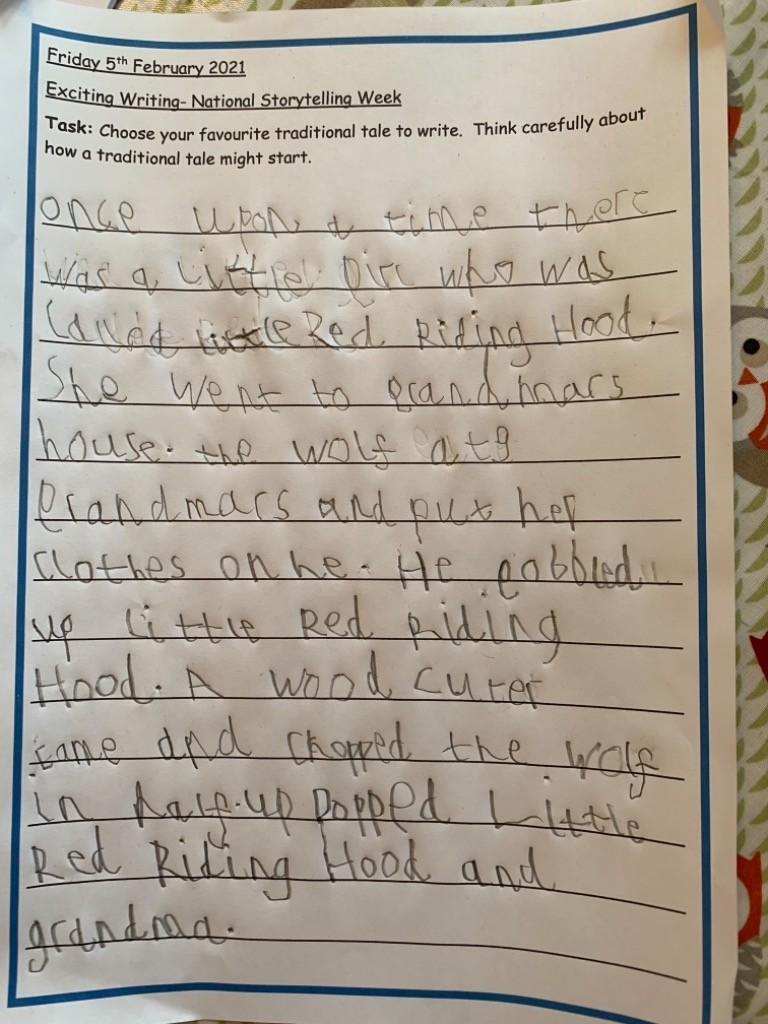 Friday 5th February 2021
Exciting Writing- National Storytelling Week
Task: Choose your favourite traditional tale to write. Think carefully about
how a traditional tale might start.
once upon a time there
was a little girl who was
called little Red Riding Hood.
She went to grandmars
house. the wolf ate
grandmars and put her
clothes on he. He gobbled
up little Red Riding
Hood. A wood cuter
came and chopped the wolf
in half. up popped Little
Red Riding Hood and
grandma.